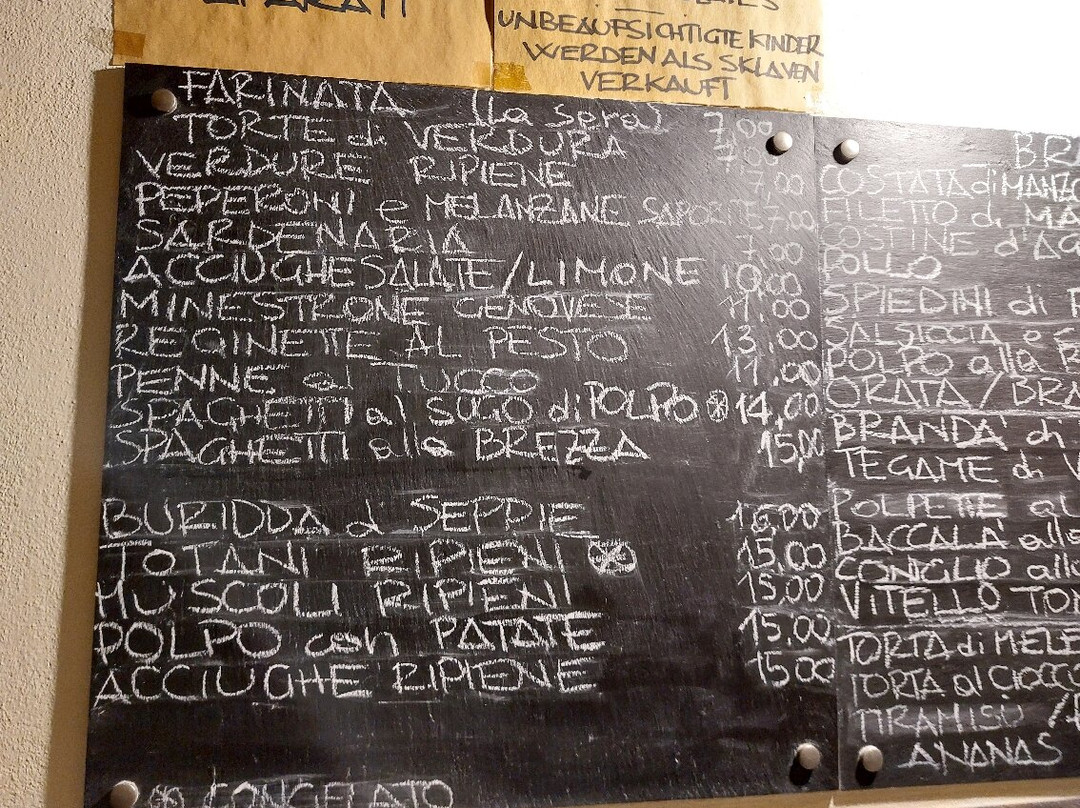 UNBEAUFSICHTIGTE KINDER
WERDEN ALS SKLAVEN
VERKAUFT
FARINATA (la sera) 7,00
TORTE di VERDURA 7,00
VERDURE RIPIENE 7,00
PEPERONI e MELANZANE 7,00
SARDENARIA 7,00
ACCIUGHE SALATE/LIMONE 10,00
MINESTRONE GENOVESE 11,00
REGINETTE AL PESTO 13,00
PENNE al TUCCO 11,00
SPAGHETTI al SUGO di POLPO 14,00
SPAGHETTI alla BREZZA 15,00
BURIDDA di SEPPIE 16,00
TOTANI RIPIENI 15,00
MUSCOLI RIPIENI 15,00
POLPO con PATATE 15,00
ACCIUGHE RIPIENE 15,00
CONGELATO
BRA
COSTATA di MANZO
FILETTO di MA
COSTINE d'AG
POLLO
SPIEDINI di
SALSICCIA e
POLPO alla
ORATA / BRA
BRANDA' di
TEGAME di
POLPETTE al
BACCALÀ alla
CONIGLIO alla
VITELLO TON
TORTA di MELE
TORTA al CIOCCO
TIRAMISU
ANANAS